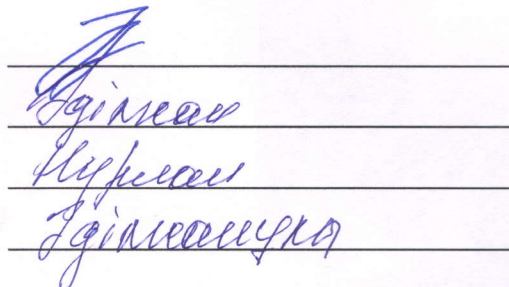 Әділжан
Нұрлан
Әділжанұлы